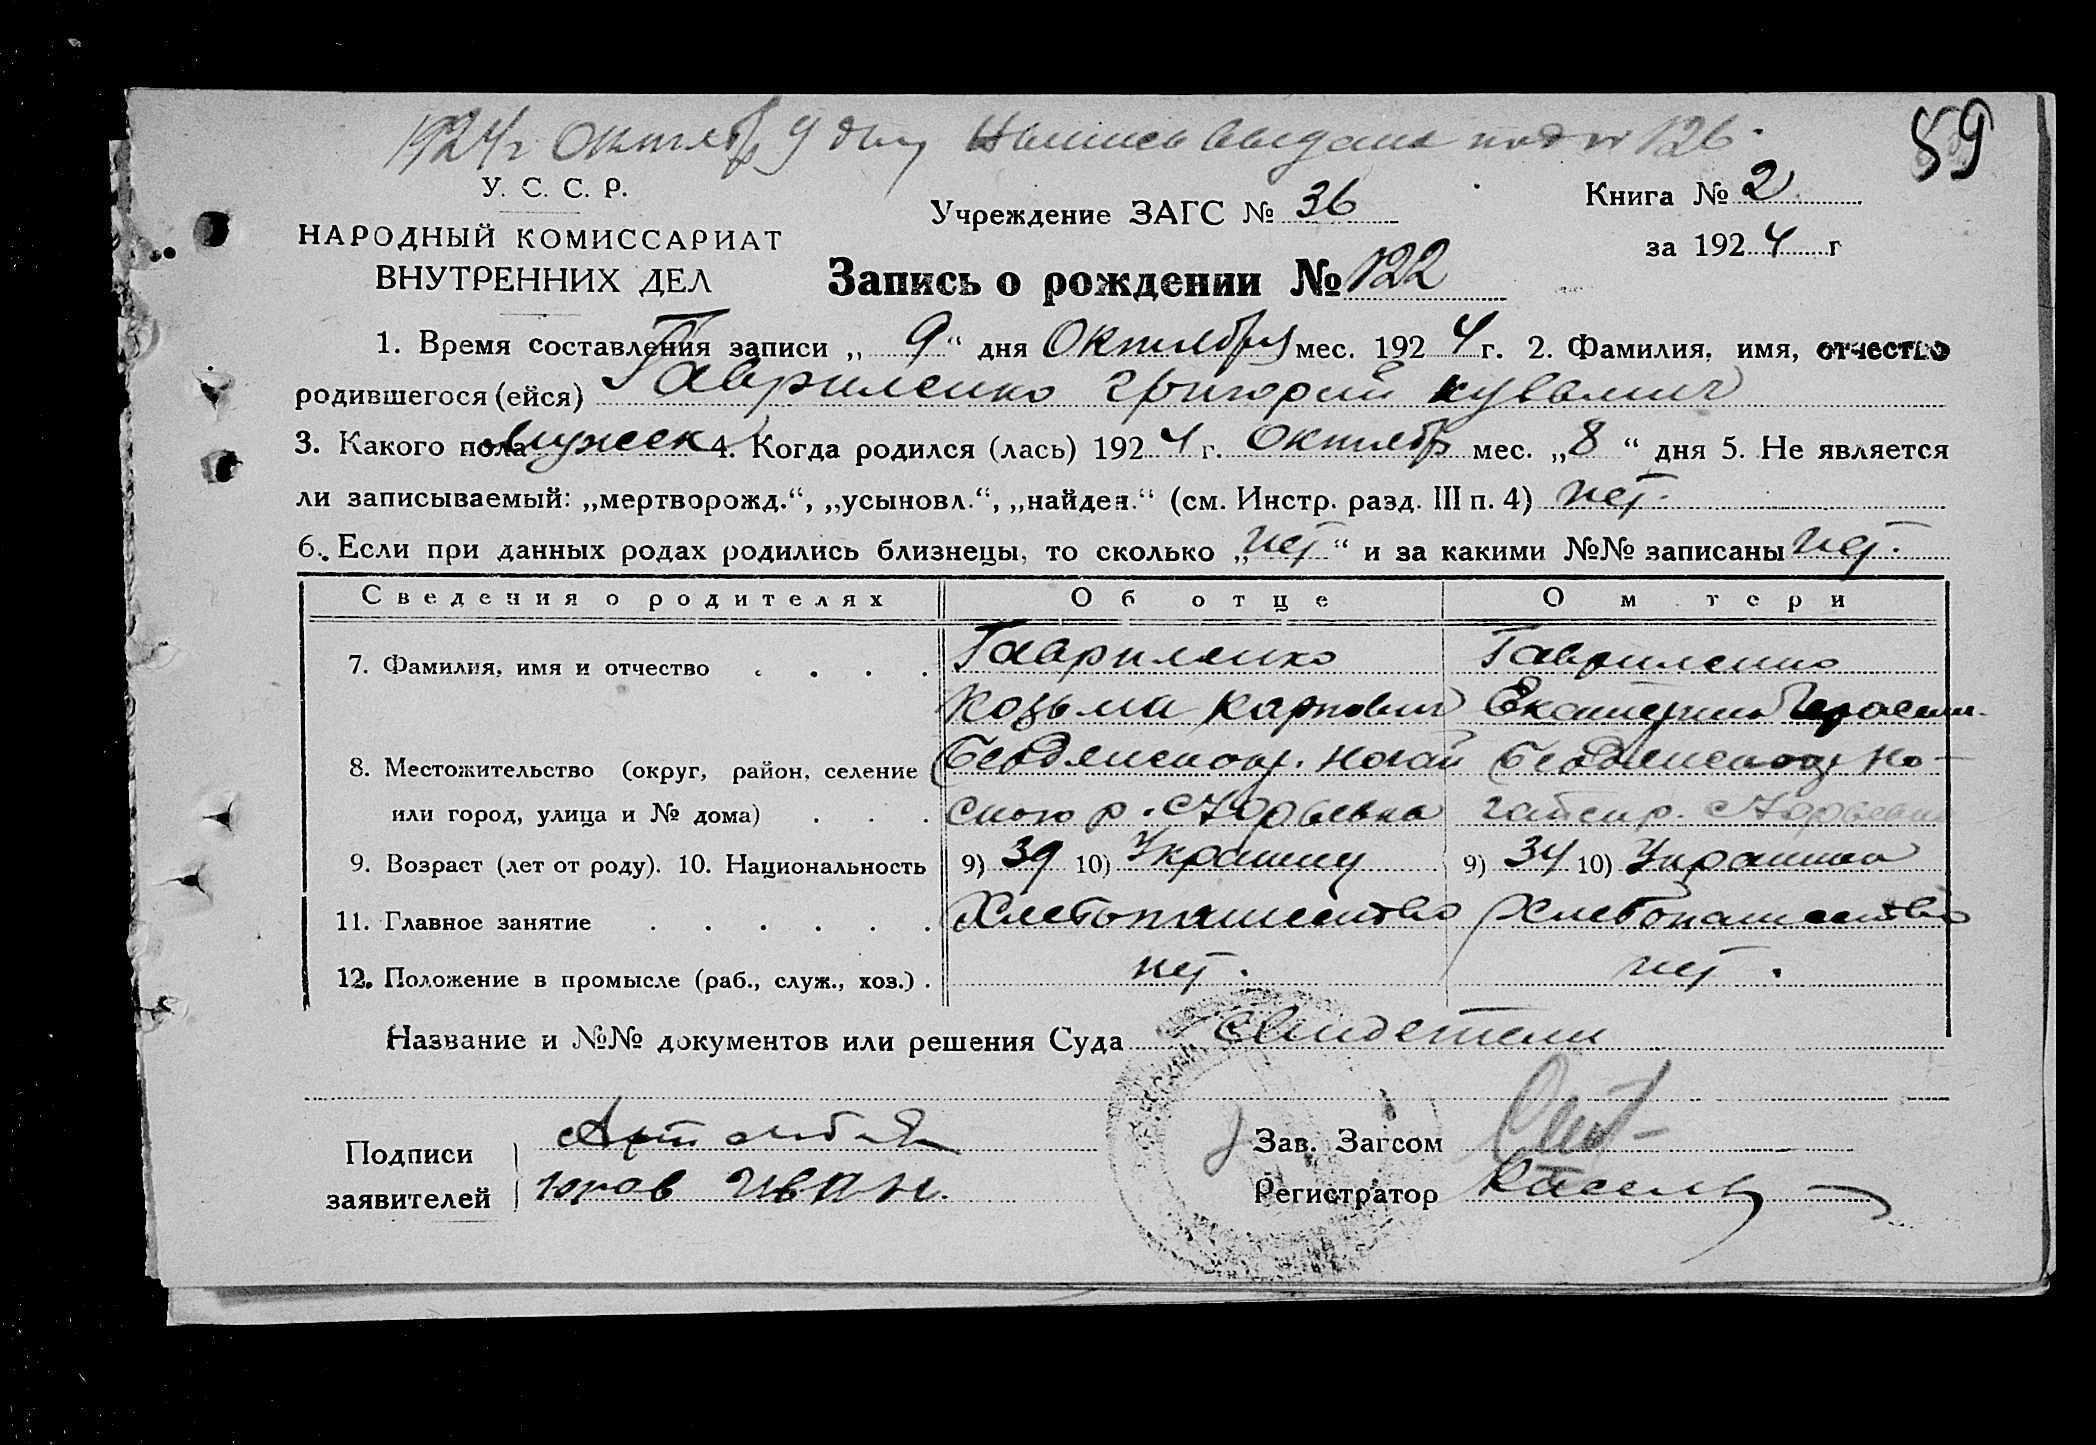 1924 г Октябр 9 дня выдана под № 126.
59
У. С. С. Р.
НАРОДНЫЙ КОМИССАРИАТ
ВНУТРЕННИХ ДЕЛ
Учреждение ЗАГС № 36
Книга № 2
за 1924 г
Запись о рождении № 122
1. Время составления записи „ 9 “ дня Октября мес. 1924 г. 2. Фамилия, имя, отчество
родившегося (ейся) Гавриленко Григорий Кузьмич
3. Какого пола мужск 4. Когда родился (лась) 1924 г. Октябр мес. „8“ дня 5. Не является
ли записываемый: „мертворожд.“, „усыновл.“, „найден.“ (см. Инстр. разд. III п. 4) нет.
6. Если при данных родах родились близнецы, то сколько „нет“ и за какими №№ записаны нет.
Сведения о родителях Об отце О м тери
7. Фамилия, имя и отчество . . . . Гавриленко Гавриленко
Козьма Карпович Екатерина Герасим.
8. Местожительство (округ, район, селение Бердянского. Ногай Бердянског Но-
или город, улица и № дома) . . . ского р. с Юрьевка гайск р. с Юрьевка
9. Возраст (лет от роду). 10. Национальность 9) 39 10) Украинец 9) 34 10) Украинка
11. Главное занятие . . . . . . Хлебопашество Хлебопашество
12. Положение в промысле (раб., служ., хоз.) . нет. нет.
Название и №№ документов или решения Суда Свидетели
Подписи
заявителей
Иван.
Зав. Загсом
Регистратор